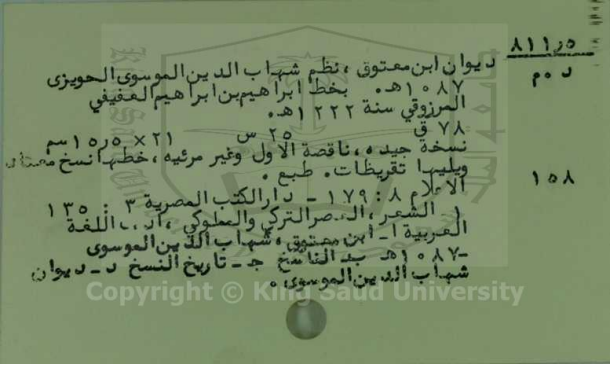 ٨١١ر٥
د٠م
ديوان ابن معتوق ، نظم شهاب الدين الموسوى الحويزى
١٠٨٧هـ. بخط ابراهيم بن ابراهيم العفيفي
المرزوقي سنة ١٢٢٢هـ.
٧٨ ق ٢٥ س ٢١×١٥ر٥سم
نسخة جيده ، ناقصة الاول وغير مرئيه ، خطها نسخ معتاد
ويليها تقريظات. طبع .
١٥٨
الاعلام ٨ : ١٧٩- دار الكتب المصرية ٣ : ١٣٥
١ الشعر ، العصر التركي والمملوكي ، اللغة
العربية ١ـ ابن معتوق ، شهاب الدين الموسوى
-١٠٨٧هـ بـ الناسخ جـ تاريخ النسخ د ـ ديوان
شهاب الدين الموسوى .
Copyright © King Saud University